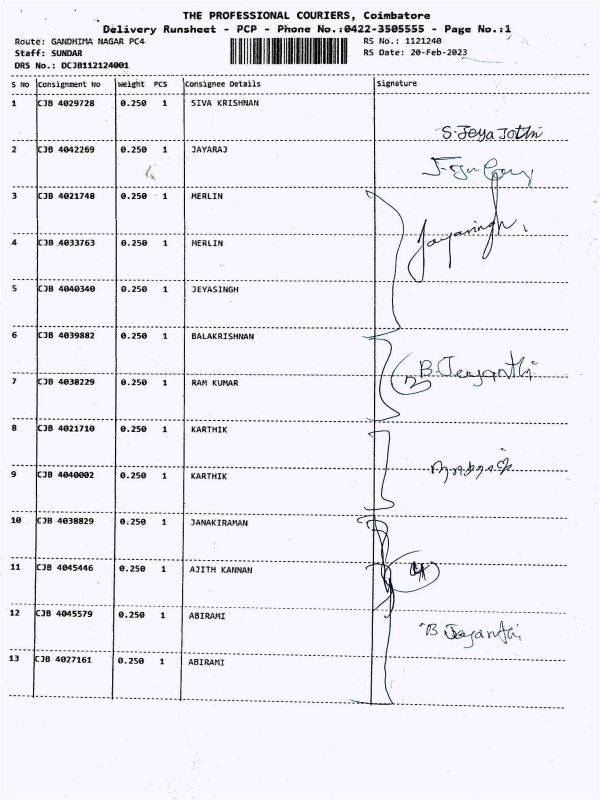 THE PROFESSIONAL COURIERS, Coimbatore
Delivery Runsheet - PCP - Phone No.:0422-3505555 - Page No.:1
Route: GANDHIMA NAGAR PC4 RS No.: 1121240
Staff: SUNDAR RS Date: 20-Feb-2023
DRS No.: DCJB112124001
S No Consignment No Weight PCS Consignee Details Signature
1 CJB 4029728 0.250 1 SIVA KRISHNAN
S. Jeya Jothi
2 CJB 4042269 0.250 1 JAYARAJ
3 CJB 4021748 0.250 1 MERLIN
Jayasingh
4 CJB 4033763 0.250 1 MERLIN
5 CJB 4040340 0.250 1 JEYASINGH
6 CJB 4039882 0.250 1 BALAKRISHNAN
B. Jeyanthi
7 CJB 4038229 0.250 1 RAM KUMAR
8 CJB 4021710 0.250 1 KARTHIK
9 CJB 4040002 0.250 1 KARTHIK
10 CJB 4038829 0.250 1 JANAKIRAMAN
11 CJB 4045446 0.250 1 AJITH KANNAN
12 CJB 4045579 0.250 1 ABIRAMI
B Jeyanthi
13 CJB 4027161 0.250 1 ABIRAMI